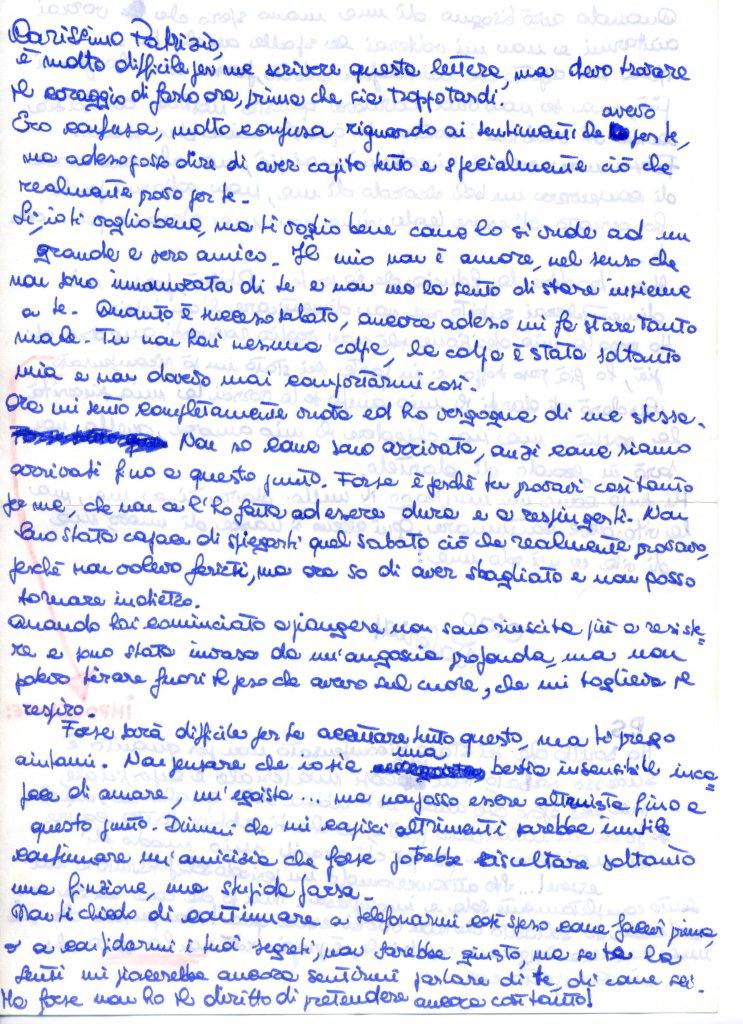 Carissimo Patrizio,
è molto difficile per me scrivere questa lettera, ma devo trovare
il coraggio di farlo ora, prima che sia troppo tardi.
Ero confusa, molto confusa riguardo ai sentimenti che avevo per te,
ma adesso posso dire di aver capito tutto e specialmente ciò che
realmente provo per te.
Sì, io ti voglio bene, ma ti voglio bene come lo si vuole ad un
grande e vero amico. Il mio non è amore, nel senso che
non sono innamorata di te e non me la sento di stare insieme
a te. Quanto è successo sabato, ancora adesso mi fa stare tanto
male. Tu non hai nessuna colpa, la colpa è stata soltanto
mia e non dovevo mai comportarmi così.
Ora mi sento completamente vuota ed ho vergogna di me stessa.
Non so come sono arrivata, anzi come siamo
arrivati fino a questo punto. Forse è perché tu provavi così tanto
per me, che non ce l'ho fatta ad essere dura e a respingerti. Non
sono stata capace di spiegarti quel sabato ciò che realmente provavo,
perché non volevo ferirti, ma ora so di aver sbagliato e non posso
tornare indietro.
Quando hai cominciato a piangere non sono riuscita più a resiste=
re e sono stata invasa da un'angoscia profonda, ma non
potevo tirare fuori il peso che avevo sul cuore, che mi toglieva il
respiro.
Forse sarà difficile per te accettare tutto questo, ma ti prego
aiutami. Non pensare che io sia una bestia insensibile inca=
pace di amare, un'egoista... ma non posso essere altruista fino a
questo punto. Dimmi che mi capisci altrimenti sarebbe inutile
continuare un'amicizia che forse potrebbe risultare soltanto
una finzione, una stupida farsa.
Non ti chiedo di continuare a telefonarmi così speso come facevi prima,
o a confidarmi i tuoi segreti, non sarebbe giusto, ma se te la
senti mi piacerebbe ancora sentirmi parlare di te, di come sei.
Ma forse non ho il diritto di pretendere ancora così tanto!